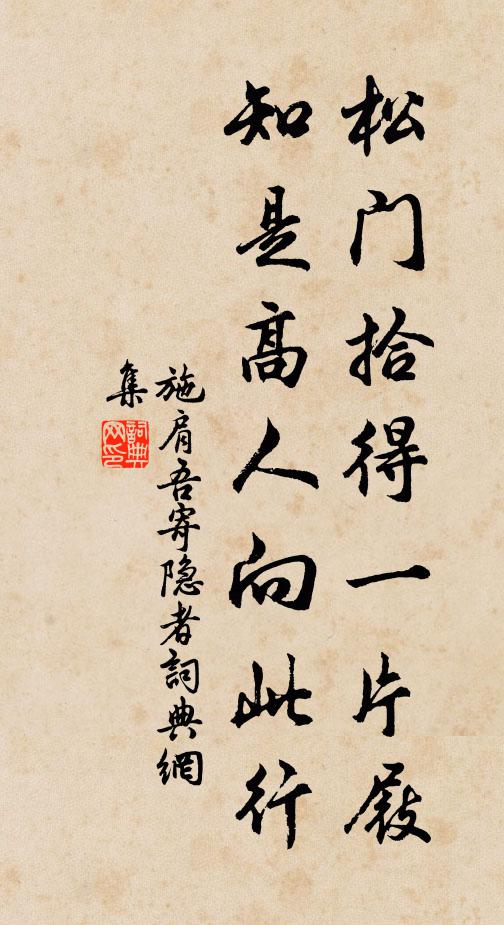 松门拾得一片屐
知是高人向此行
施肩吾寄隐者詞典網
集
詞典网印